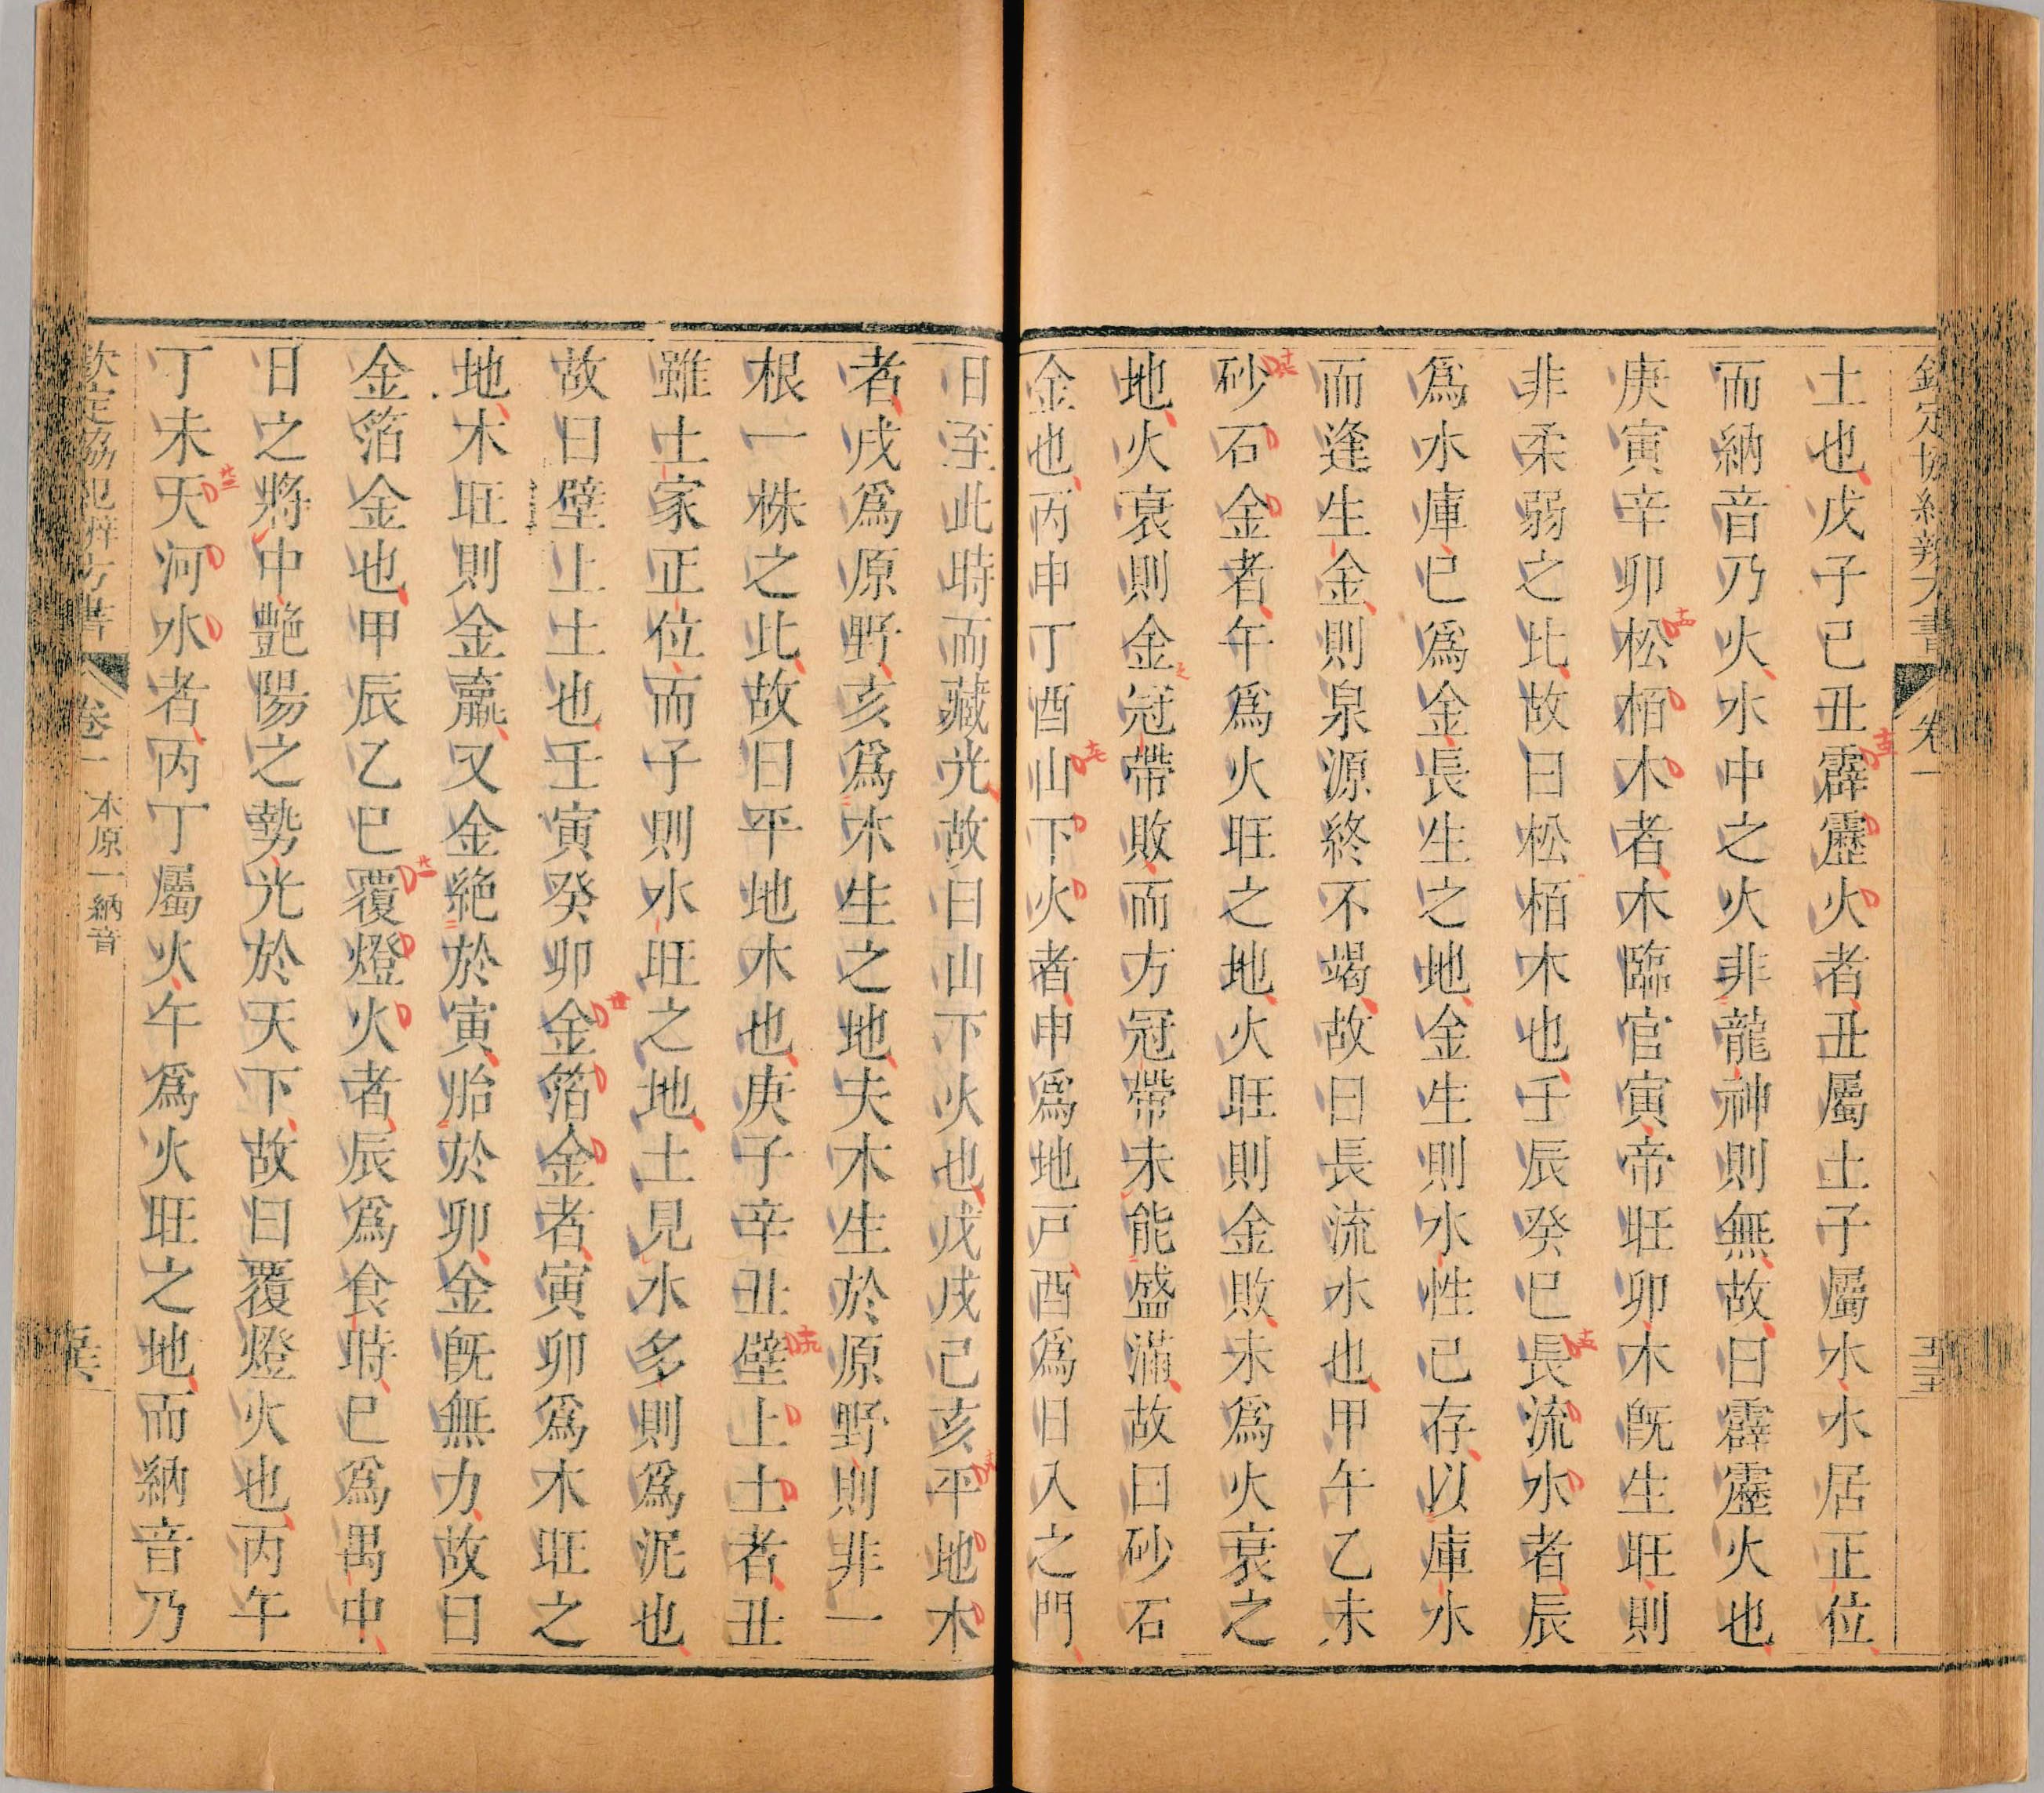 欽定協紀辨方書 卷一
土也戊子己丑霹靂火者丑屬土子屬水水居正位
而納音乃火水中之火非龍神則無故曰霹靂火也
庚寅辛卯松栢木者木臨官寅帝旺卯木旣生旺則
非柔弱之比故曰松栢木也壬辰癸巳長流水者辰
爲水庫巳爲金長生之地金生則水性已存以庫水
而逢生金則泉源終不竭故曰長流水也甲午乙未
砂石金者午爲火旺之地火旺則金敗未爲火衰之
地火衰則金冠帶敗而方冠帶未能盛滿故曰砂石
金也丙申丁酉山下火者申爲地戸酉爲日入之門
日至此時而藏光故曰山下火也戊戌己亥平地木
者戌爲原野亥爲木生之地夫木生於原野則非一
根一株之比故曰平地木也庚子辛丑壁上土者丑
雖土家正位而子則水旺之地土見水多則爲泥也
故曰壁上土也壬寅癸卯金箔金者寅卯爲木旺之
地木旺則金羸又金絶於寅胎於卯金旣無力故曰
金箔金也甲辰乙巳覆燈火者辰爲食時巳爲禺中
日之將中艷陽之勢光於天下故曰覆燈火也丙午
丁未天河水者丙丁屬火午爲火旺之地而納音乃
欽定協紀辨方書 卷一 本原一納音